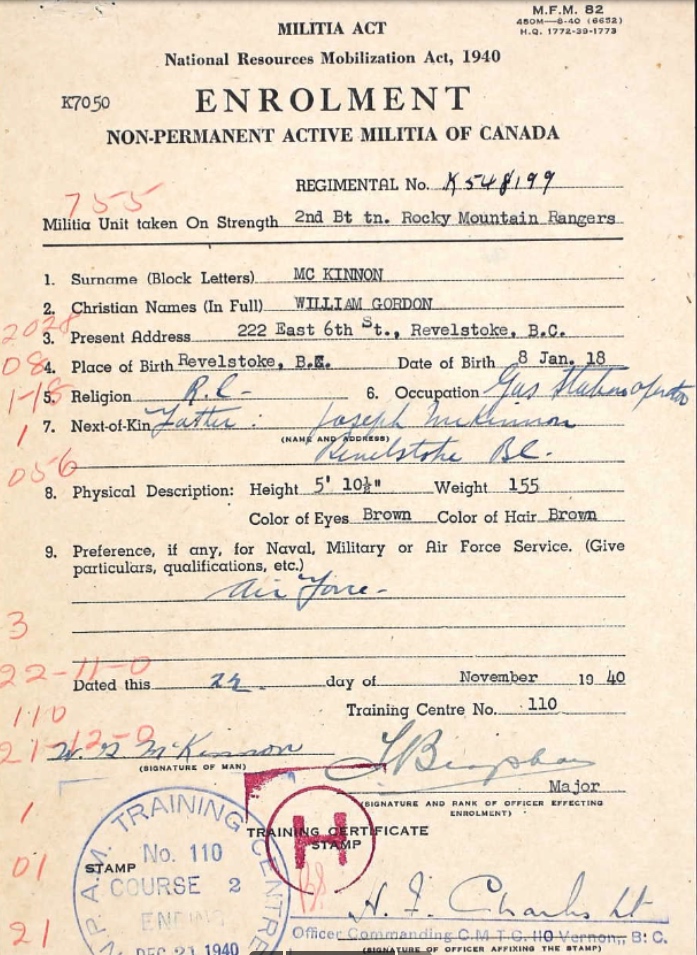 M.F.M. 82
450M—8-40 (6652)
H.Q. 1772-39-1773
MILITIA ACT
National Resources Mobilization Act, 1940
K7050
ENROLMENT
NON-PERMANENT ACTIVE MILITIA OF CANADA
REGIMENTAL No. K548199
755
Militia Unit taken On Strength 2nd Bt tn. Rocky Mountain Rangers
1. Surname (Block Letters) MC KINNON
2. Christian Names (In Full) WILLIAM GORDON
2028
3. Present Address 222 East 6th St., Revelstoke, B.C.
08
4. Place of Birth Revelstoke, B.C. Date of Birth 8 Jan. 18
1-18
5. Religion R.C. 6. Occupation Gas Station operator
1
7. Next-of-Kin Father: Joseph McKinnon
(NAME AND ADDRESS)
Revelstoke BC.
056
8. Physical Description: Height 5' 10½" Weight 155
Color of Eyes Brown Color of Hair Brown
9. Preference, if any, for Naval, Military or Air Force Service. (Give
particulars, qualifications, etc.)
Air Force-
3
22-11-0
Dated this 22 day of November 19 40
110
Training Centre No. 110
21-12-0
W. G McKinnon
(SIGNATURE OF MAN)
Major
(SIGNATURE AND RANK OF OFFICER EFFECTING
ENROLMENT)
1
TRAINING CERTIFICATE
STAMP
H
STAMP
A.M. TRAINING CENTRE
No. 110
COURSE 2
ENDING
DEC 21 1940
01
H. F. Charles Lt
21
Officer Commanding C.M.T.C. 110 Vernon, B.C.
(SIGNATURE OF OFFICER AFFIXING THE STAMP)